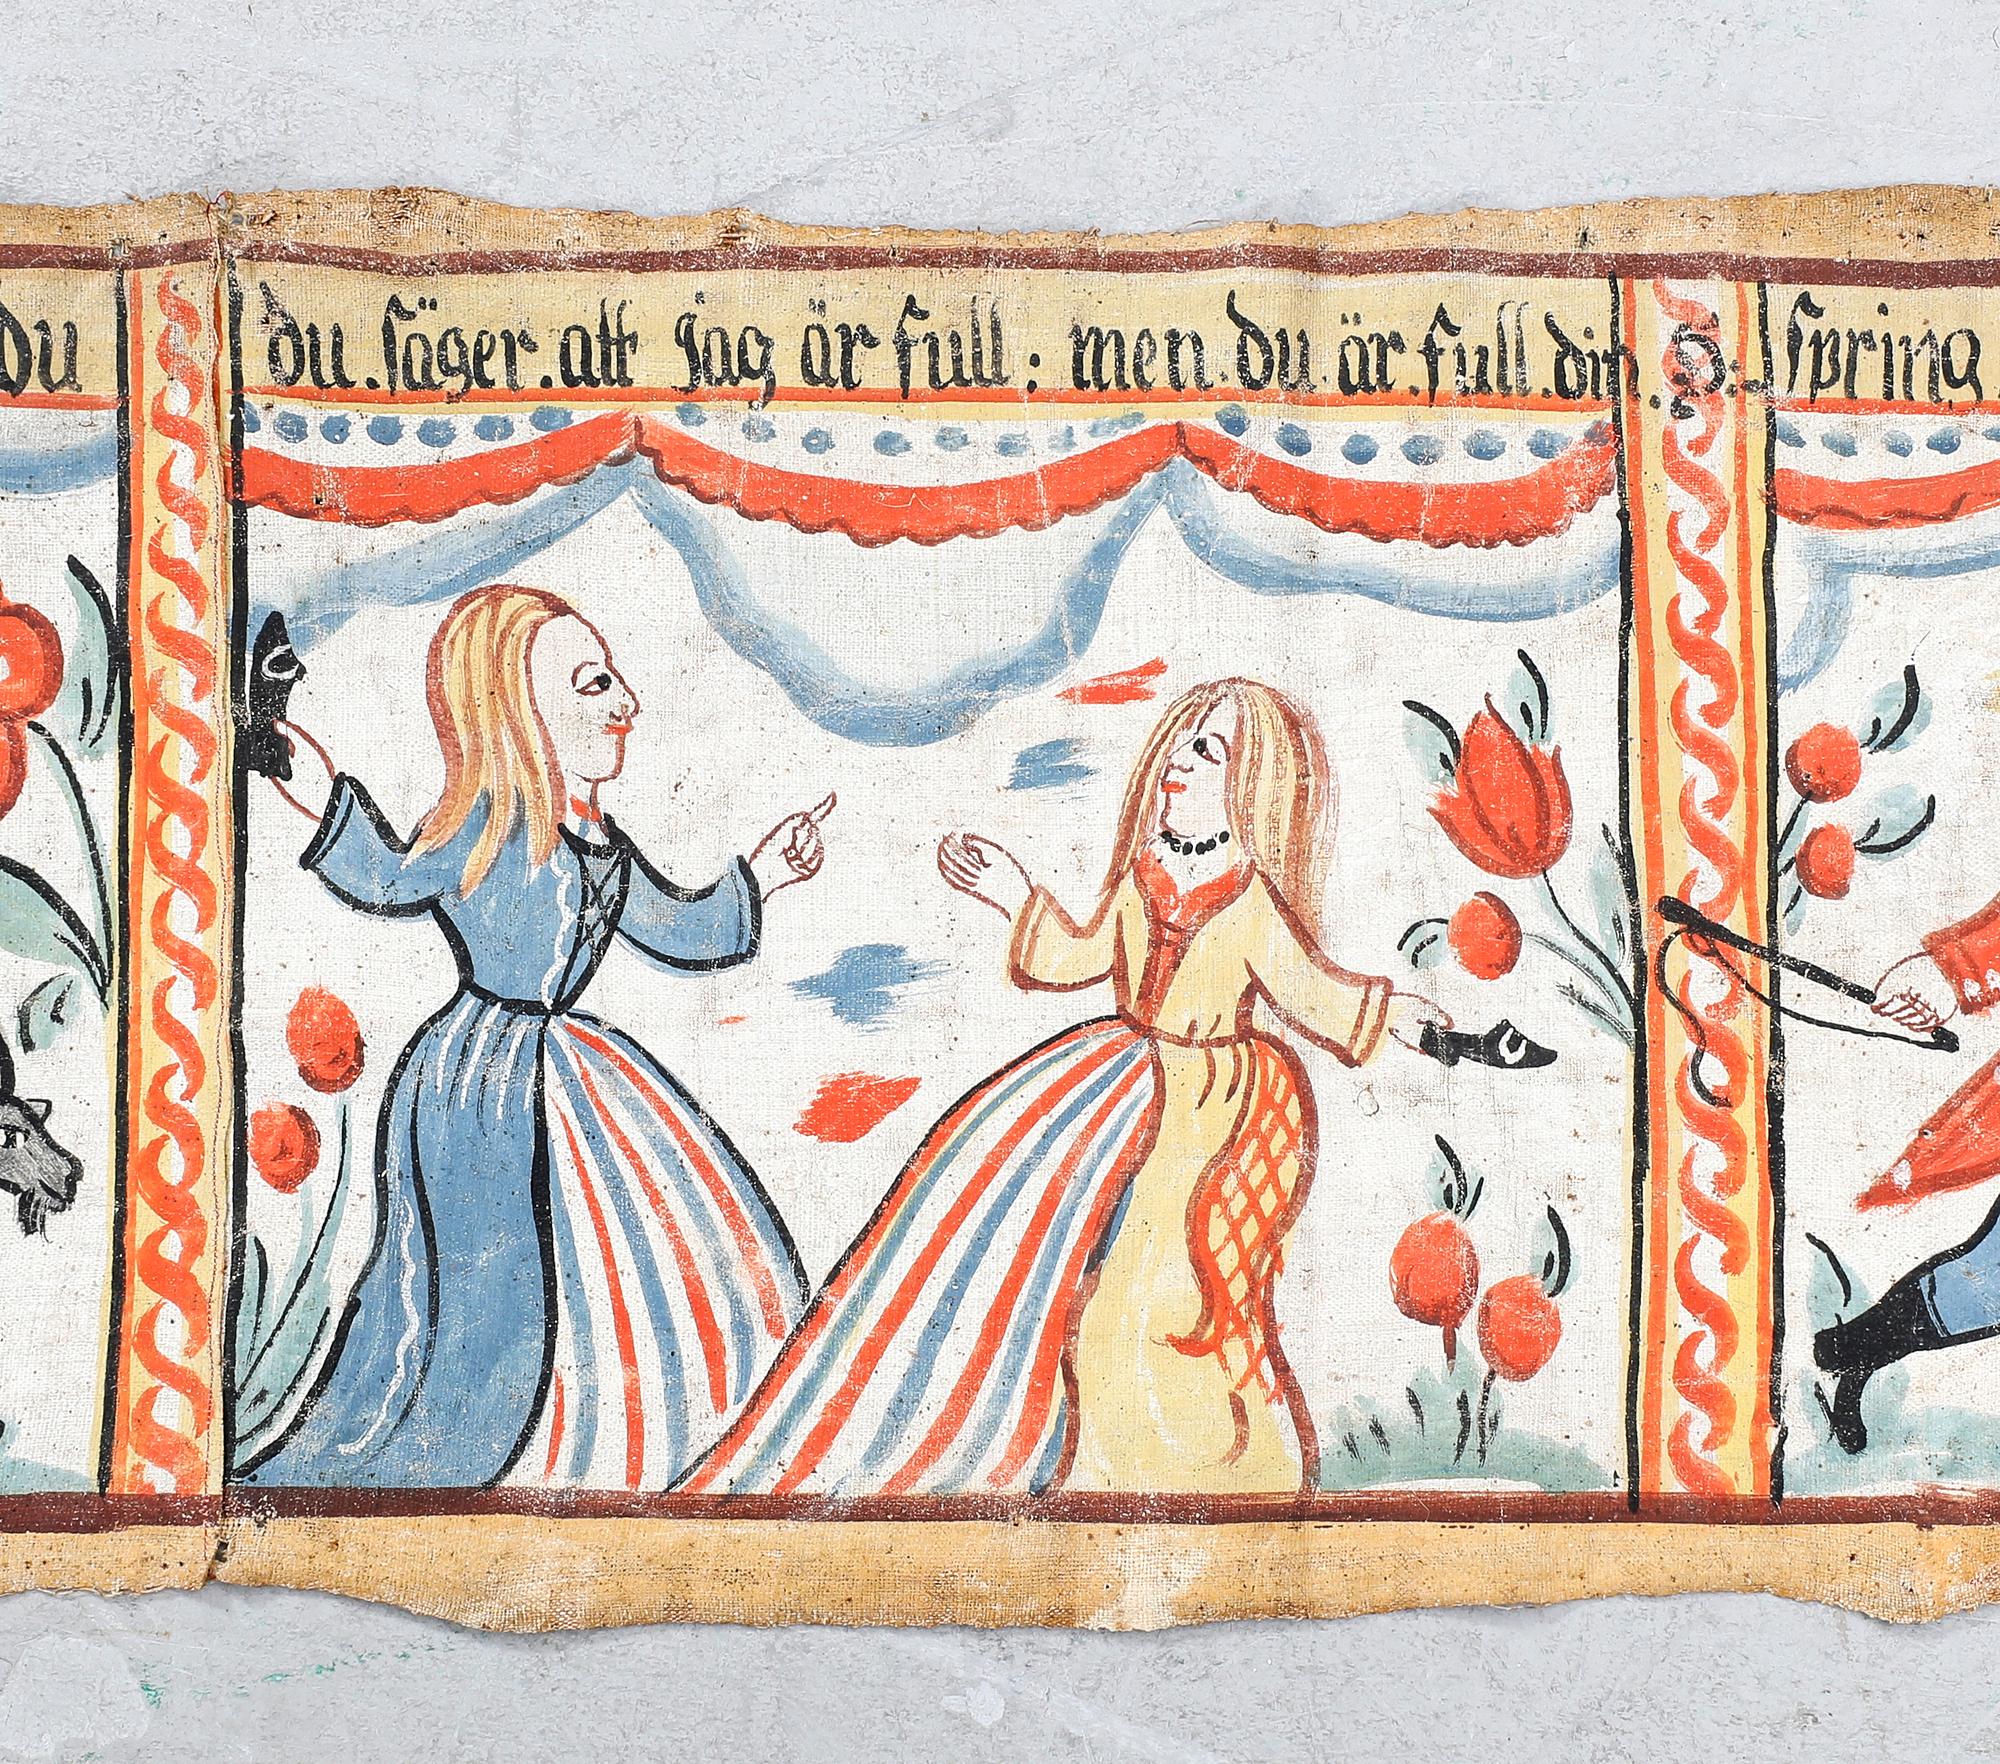 du du. säger. att jag är full: men. du är. full. din. S:- spring